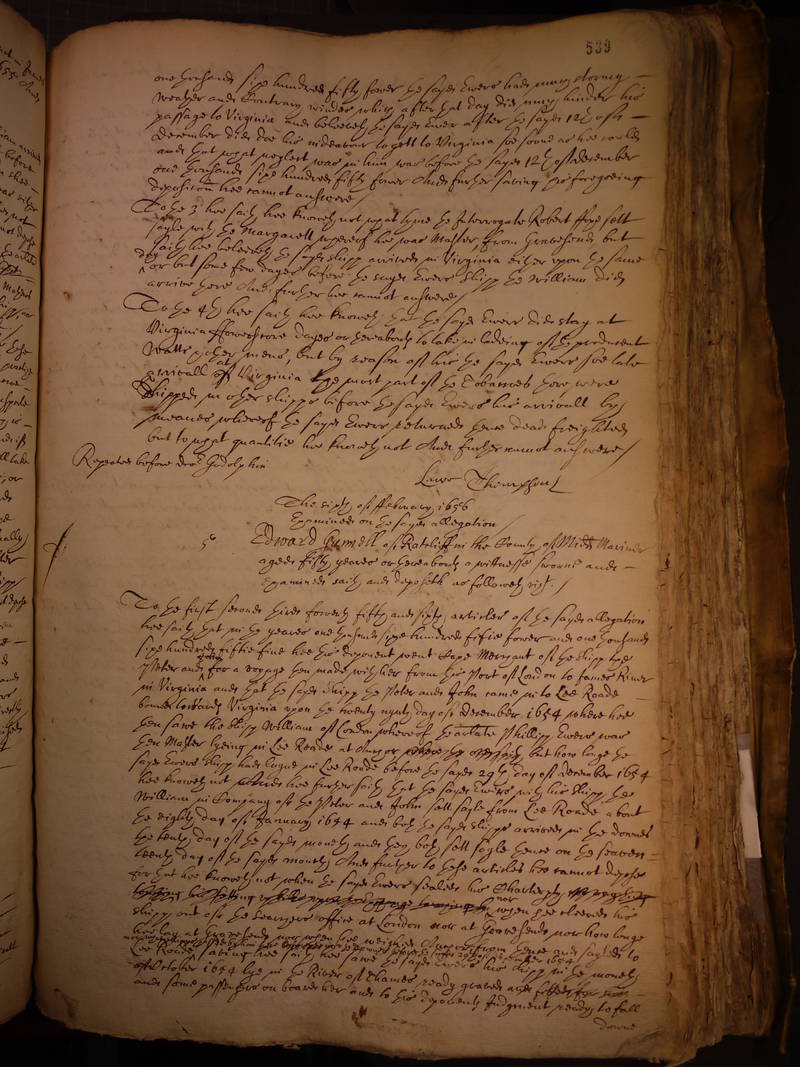 539
one thousand six hundred fifty fower the sayd Ewers had many stormy
weather and Contrary windes which after that day did much hinder his
passage to Virginia and beleeveth the sayd Ewer after the sayd 12th of
december did doe his indeavour to gett to Virginia soe soone as hee could
and that what neglect was in him was before the sayd 12th of december
one thousand sixe hundred fifty fower And further saving his foregoeing
deposition hee cannot answere
To the 3 hee saith hee knoweth not what tyme the Interrogate Robert sett
sayle with the Margarett whereof hee was Master from Gravesend but
saith hee beleeveth the sayd shipp arrived in Virginia either upon the same
day or but some few dayes before the sayd Ewers shipp the William did
arrive there And further hee cannot answere
To the 4th hee saith hee knoweth that the sayd Ewer did stay at
Virginia fowerscore dayes or thereabouts to take in ladeing of the producent
Watts other mens, but by reason of his the sayd Ewers soe late
arrivall at Virginia the most part of the Tobaccoes there were
shipped in other shipps before the sayd Ewers his arrivall by
meanes whereof the sayd Ewers returned home dead freighted
but to what quantitie hee knoweth not And further cannot answere
Repeated before doctor Godolphin
Thompson
The sixth of february 1656
Examined on the sayd allegation
5us
Edward of Ratcliff in the County of Middx Mariner
aged fifty yeares or thereabouts a witnesse sworne and
examined saith and deposeth as followeth vizt.
To the first second third fowerth fifth and sixth articles of the sayd allegation
hee saith that in the yeares one thousand sixe hundred fiftie fower and one thousand
sixe hundred fiftie five hee this deponent went Cape Merchant of the shipp the
Peter and John for a voyage then made with her from this Port of London to James River
in Virginia and that the sayd shipp the Peter and John came into Lee Roade
bound towards Virginia upon the twenty nynth day of december 1654 where hee
then sawe the shipp William of London whereof the arlate Phillipp Ewers was
then Master lyeing in Lee Roade at Anchor but how longe the
sayd Ewers shipp had layne in Lee Roade before the sayd 29th day of december 1654
hee knoweth not And hee further saith that the sayd Ewers with his shipp the
William in Company of the Peter and John sett sayle from Lee Roade about
the eighth day of January 1654 and both the sayd shipps arrived in the downes
the tenth day of the sayd moneth and they both sett sayle thence on the seaven
teenth day of the sayd moneth And further to these articles hee cannot depose
for that hee knoweth not when the sayd Ewers sealed his Charterparty
nor when hee cleered his
shipp out of the Searchers office at London nor at Gravesend nor how longe
hee lay at Gravesend nor when hee weighed Anchor from thence and sayled to
Lee Roade saving hee saith hee sawe the sayd Ewers his shipp in the moneth
of October 1654 lye in the River of Thames ready graved and
and some passengers on board her and to this deponents Judgment ready to fall
downe